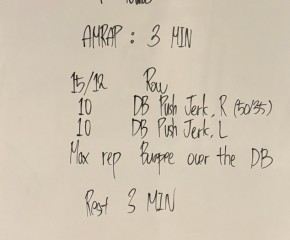 AMRAP : 3 MIN
15/12 Row
10 DB Push Jerk, R (50/35)
10 DB Push Jerk, L
Max rep Burpee over the DB
Rest 3 MIN